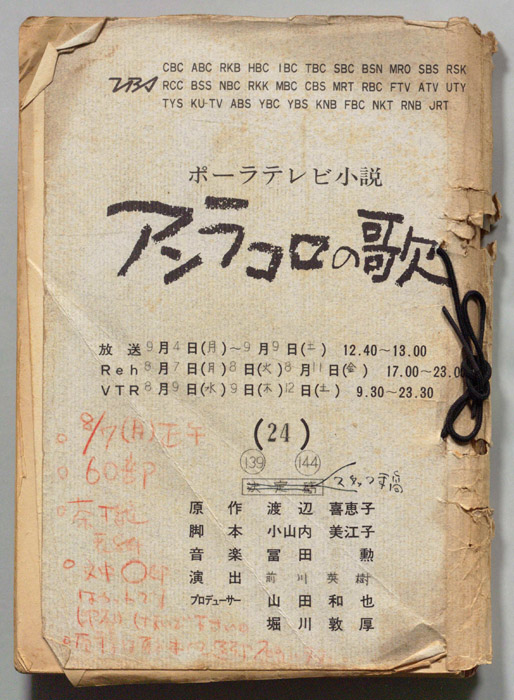 TBS CBC ABC RKB HBC IBC TBC SBC BSN MRO SBS RSK
RCC BSS NBC RKK MBC CBS MRT RBC FTV ATV UTY
TYS KU-TV ABS YBC YBS KNB FBC NKT RNB JRT
ポーラテレビ小説
アンラコロの歌
放送 9月4日(月)〜9月9日(土) 12.40〜13.00
Reh 8月7日(月)8日(火)8月11日(金) 17.00〜23.00
VTR 8月9日(水)9日(木)12日(土) 9.30〜23.30
(24)
139 144
決定稿
原作 渡辺喜恵子
脚本 小山内美江子
音楽 冨田勲
演出 前川英樹
プロデューサー 山田和也
堀川敦厚
8/7(月)正午
60部